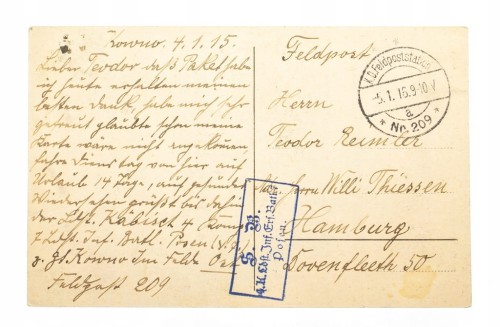 Kowno. 4.1.15.
Lieber Teodor daß Paket habe
ich heute erhalten meinen
besten Dank, habe mich sehr
gefreut glaubte schon meine
Karte wäre nicht angekommen,
fahre Dienstag von hier auf
Urlaub 14 Tage, auf gesundes
Wiedersehen grüßt bis dahin
der Ldst. Käbisct 4 Komp
7 Ldst. Inf. Batl. Posen (V.9.)
z. Zt. Kowno Im Felde Ost
Feldpost 209
Feldpost
K.D. Feldpoststation
-5.1.16.9-10V
a
* No. 209 *
Herrn
Teodor Reimler
Herrn Willi Thiessen
Hamburg
Dovenfleeth 50
S. B.
4. K. Ldst. Inf. Ers. Batl.
Posen.